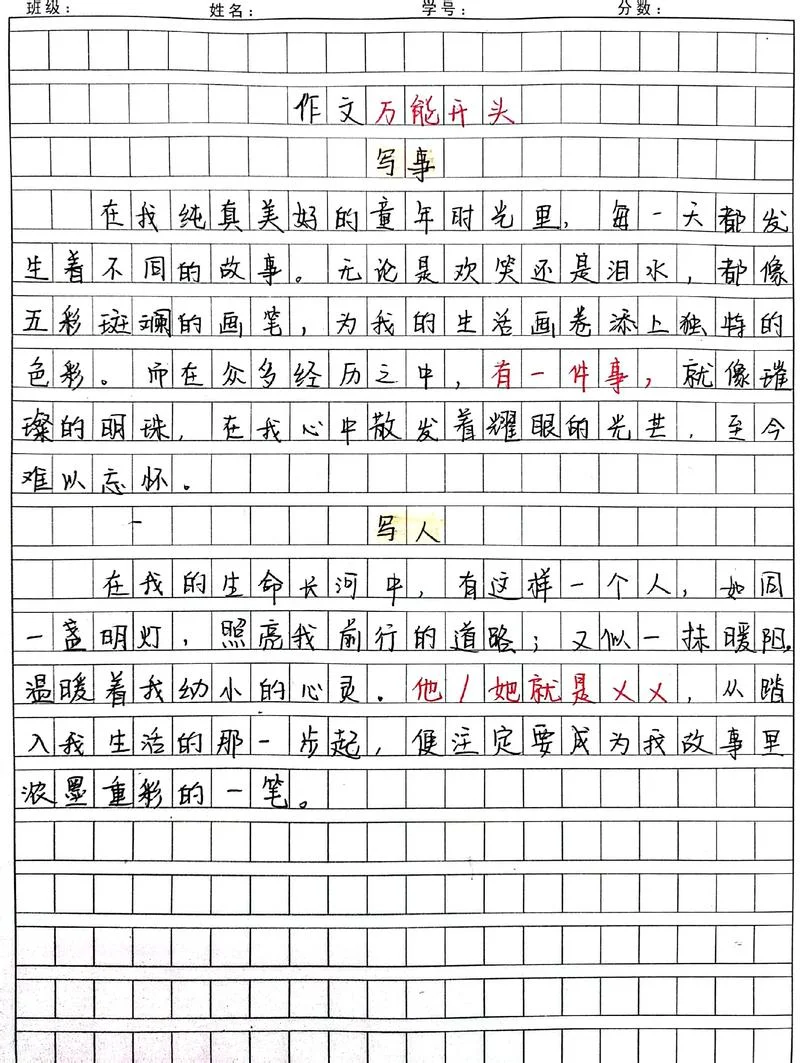 班级： 姓名： 学号： 分数：
作文万能开头
写事
在我纯真美好的童年时光里，每一天都发
生着不同的故事。无论是欢笑还是泪水，都像
五彩斑斓的画笔，为我的生活画卷添上独特的
色彩。而在众多经历之中，有一件事，就像璀
璨的明珠，在我心中散发着耀眼的光芒，至今
难以忘怀。
写人
在我的生命长河中，有这样一个人，如同
一盏明灯，照亮我前行的道路；又似一抹暖阳，
温暖着我幼小的心灵。他/她就是××，从踏
入我生活的那一步起，便注定要成为我故事里
浓墨重彩的一笔。